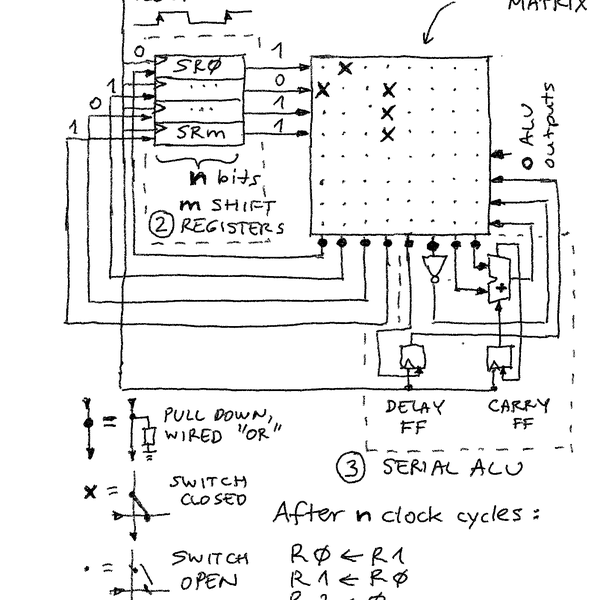 MATRIX
0
SRØ
1
1
...
0
0
...
1
1
SRm
1
n bits
m SHIFT
② REGISTERS
0 ALU
outputs
+
DELAY
FF
CARRY
FF
③ SERIAL ALU
= PULL DOWN,
WIRED "OR"
x = SWITCH
CLOSED
. = SWITCH
OPEN
After n clock cycles:
RØ ← R1
R1 ← RØ